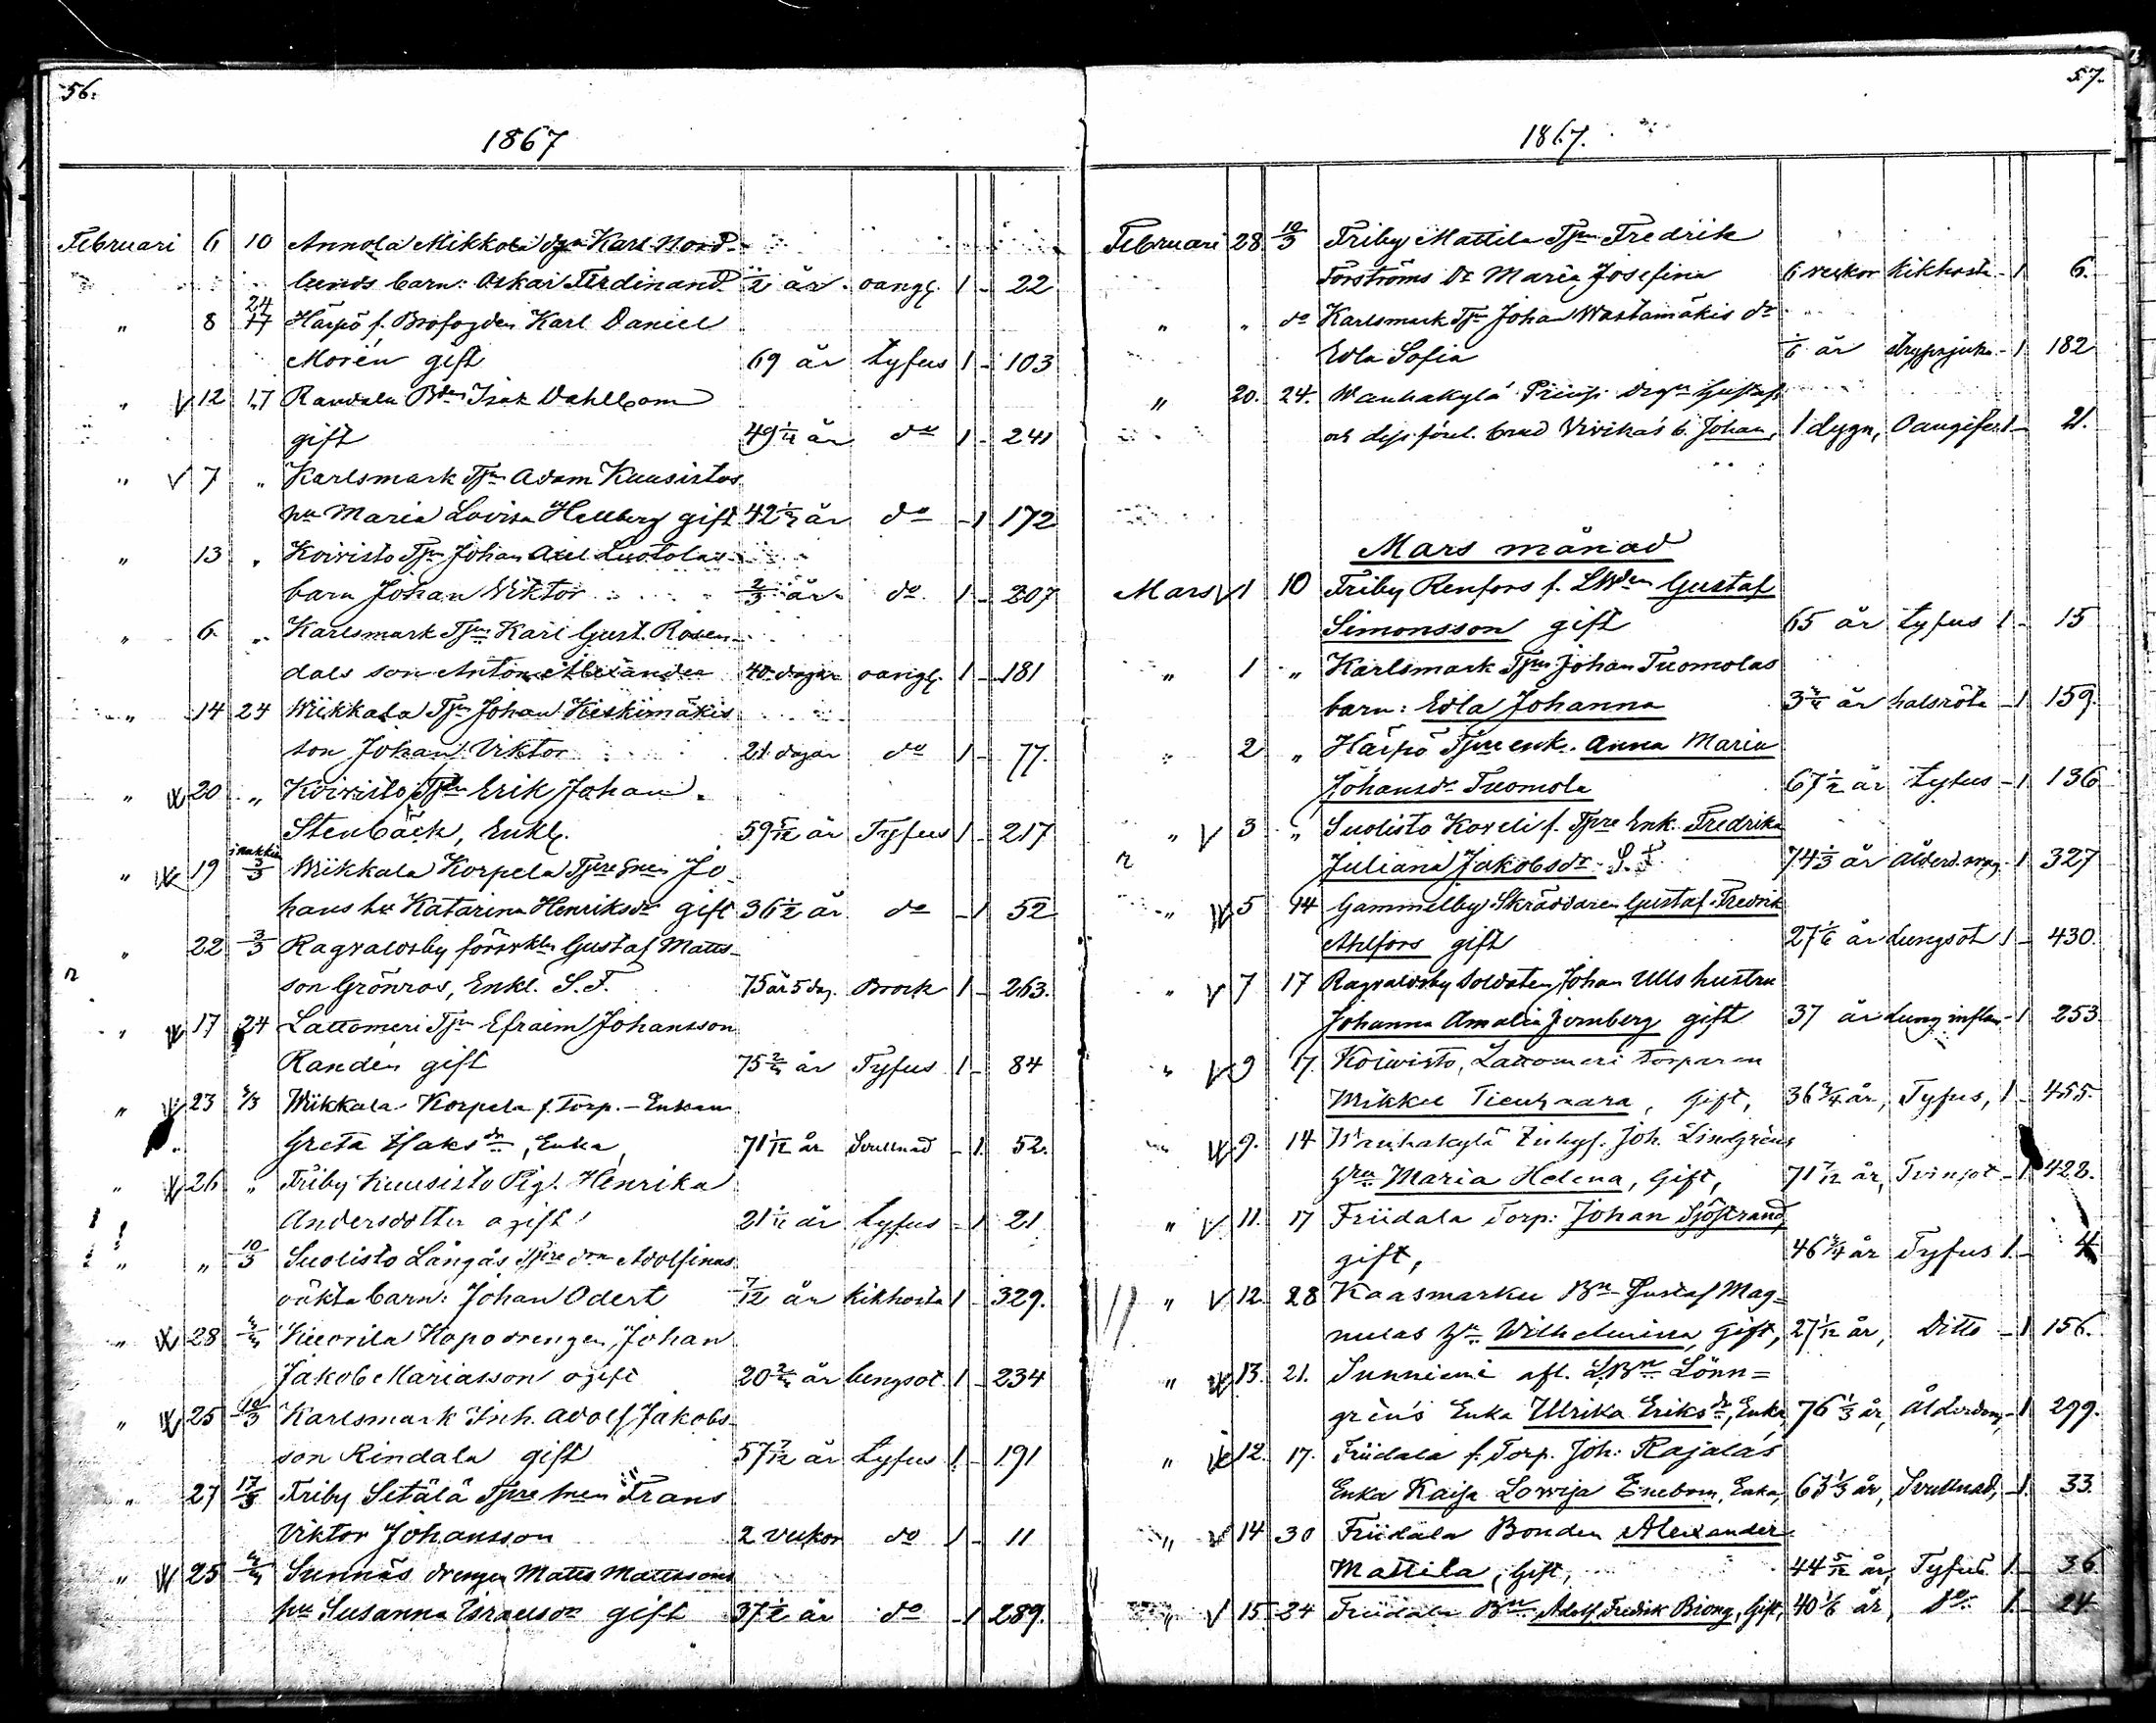 56.
1867
Februari 6 10 Annola Mikkola dgn Karl Nord-
lunds barn: Oskar Ferdinand 1/2 år oangf. 1 - 22
" 8 24 Härpö f. Brofogden Karl Daniel
Morén gift 69 år tyfus 1 - 103
" V 12 17 Bdn Isak Dahlbom
gift 49 år do 1 - 241
" V 7 " Karlsmark Tjn Adam Kuusistos
hu Maria Lovisa Hellberg gift 42 år do - 1 172
" 13 " Koivisto Tjn Johan Axel Luotolas
barn Johan Viktor 2/3 år do 1 - 207
" 6 " Karlsmark Tjn Karl Gust. Rosen-
dals son Anton Alexander 40 dagar oangf. 1 - 181
" 14 24 Wiikkala Tjn Johan Kieskimäkis
son Johan Viktor 21 dagar do 1 - 77.
" 20 " Koivisto Tjn Erik Johan
Stenbäck, Enkl. 59 5/12 år Tyfus 1 - 217
" 19 3/3 Wiikkala Korpela Tjre Jo-
hans hu Katarina Henriksdr gift 36 1/2 år do - 1 52
" 22 3/3 Ragvaldsby Gustaf Matts-
son Grönros, Enkl. S.F. 75 år 5 dag. Brock 1 - 263.
" 17 24 Lattomeri Tjn Efraim Johansson
Randén gift 75 år Tyfus 1 - 84
" 23 3/3 Wiikkala Korpela f. Torp.-Enkan
Greta Isaksdr, Enka, 71 1/12 år Svullnad - 1. 52.
" 26 " Friby Kuusisto Pig. Henrika
Andersdotter ogift 21 år tyfus - 1 21
" " 10/3 Suolisto Långås Tjre Adolfinas
oäkta barn: Johan Odert 7/12 år kikhosta 1 - 329.
" 28 Kuorila Hapo drengen Johan
Jakob Mariasson ogift 20 år lungsot 1 - 234
" 25 10/3 Karlsmark Inh. Adolf Jakobs-
son Rindala gift 57 7/12 år tyfus 1 - 191
" 27 17/3 Friby Setälä Tjre Frans
Viktor Johansson 2 veckor do 1 - 11
" 25 Sunnäs drengen Matts Mattssons
hu Susanna Israelsdr gift 37 1/2 år do - 1 289.
57.
1867.
Februari 28 10/3 Friby Mattila Tjn Fredrik
Forströms Dr Maria Josefina 6 veckor kikhosta - 1 6.
" " do Karlsmark Tjn Johan Wastamäkis dr
Edla Sofia 1/6 år - 1 182
" 20. 24. Wanhakylä Gustafs
och dess förel. brud Vivika's b. Johan, 1 dygn, Oangifen 1 - 21.
Mars månad
Mars V 1 10 Friby Renfors f. Gustaf
Simonsson gift 65 år tyfus 1 - 15
" 1 " Karlsmark Tjn Johan Tuomolas
barn: Edla Johanna 3 år halsröta - 1 159.
" 2 " Härpö Tjre enk. Anna Maria
Johansdr Tuomola 67 1/2 år tyfus - 1 136
" V 3 " Suolisto Koveli f. Tjre Enk. Fredrika
Juliana Jakobsdr S.F. 74 1/3 år - 1 327
" 5 14 Gammelby Skräddaren Gustaf Fredrik
Ahlfors gift 27 1/6 år lungsot 1 - 430.
" V 7 17 Ragvaldsby Soldaten Johan Ulls hustru
Johanna Amalia Jernberg gift 37 år lunginflam - 1 253
" V 9 17. Koivisto, Lattomeri torparen
Mikkel, Gift, 36 3/4 år, Tyfus, 1 - 455.
" 9. 14 Wanhakylä Joh. Lindgréns
Maria Helena, Gift, 71 7/12 år, - 1 428.
" V 11. 17 Friidala Torp: Johan Sjöstrand,
gift, 46 3/4 år Tyfus 1 - 4
" V 12. 28 Kaasmarku Bn Gustaf Mag-
nulas Wilhelmina, Gift, 27 1/12 år, Ditto - 1 156.
" 13. 21. Sunniemi afl. Lönn=
grén's Enka Ulrika Eriksdr, Enka, 76 1/3 år, Ålderdom, - 1 299.
" 12. 17. Friidala f. Torp. Joh: Rajala's
Enka Kaisa Lovisa Enebom, Enka, 63 1/3 år, Svullnad, - 1. 33.
" V 14 30 Friidala Bonden Alexander
Mattila, Gift, 44 5/12 år, Tyfus 1 - 36
" V 15. 24 Friidala Bn Adolf Fredrik Biong, Gift, 40 1/6 år, do 1 - 24